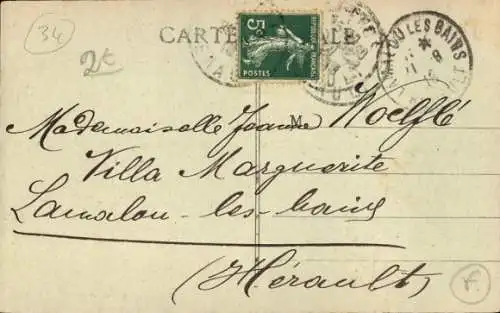 34
CARTE POSTALE
5c
REPUBLIQUE FRANCAISE
POSTES
LAMALOU LES BAINS
2€
Mademoiselle Jeanne Woelflé
M
Villa Marguerite
Lamalou-les-bains
(Hérault)